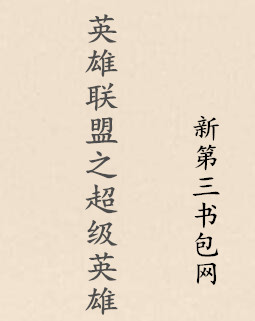 英雄联盟之超级英雄
新第三书包网